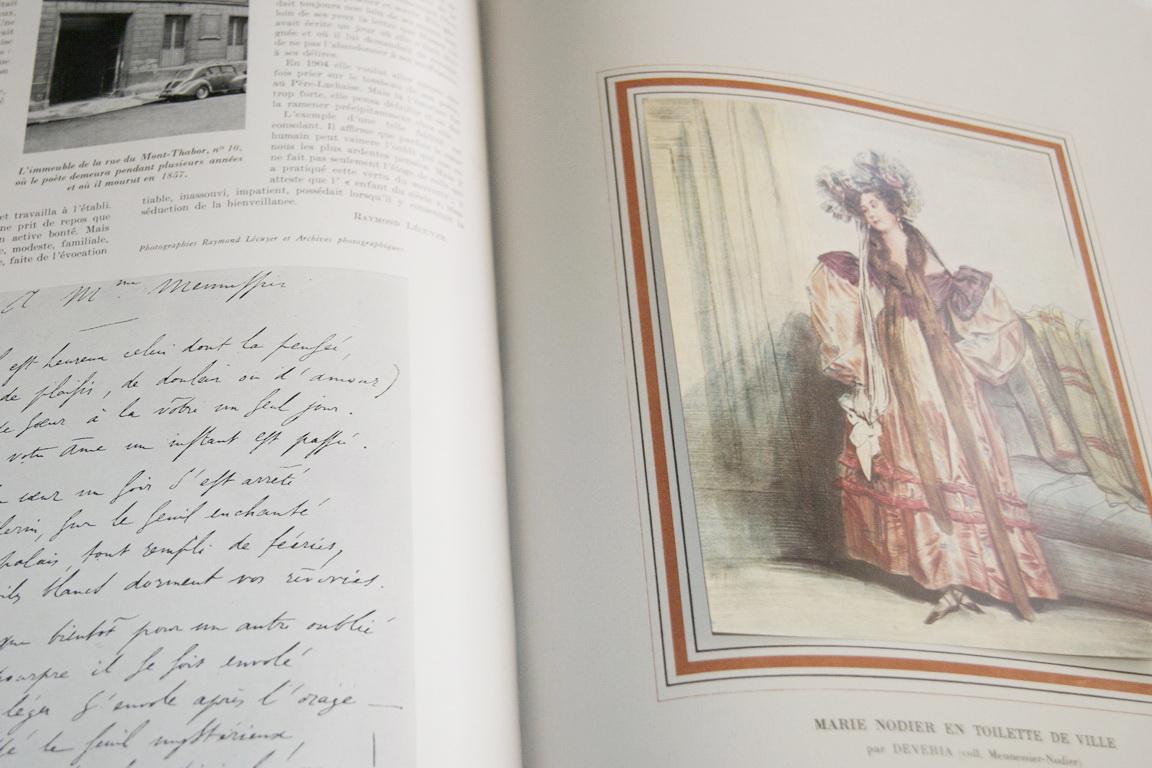 dait toujours non loin de
loin de ses yeux la lettre que
avait écrite un jour où elle
gnée et où il lui demandait
de ne pas l'abandonner à ses
à ses délires.
En 1904 elle voulut aller
fois prier sur le tombeau de
au Père-Lachaise. Mais
trop forte, elle pensa
la ramener précipitamment
L'exemple d'une telle
consolant. Il affirme que
humain peut vaincre l'oubli
nous les plus ardentes
ne fait pas seulement l'éloge de
a pratiqué cette vertu du
atteste que l' « enfant du siècle »
L'immeuble de la rue du Mont-Thabor, nº 10,
où le poète demeura pendant plusieurs années
et où il mourut en 1857.
et travailla à l'établi.
ne prit de repos que
n active bonté. Mais
e, modeste, familiale,
, faite de l'évocation
tiable, inassouvi, impatient, possédait lorsqu'il y consentait la
séduction de la bienveillance.
RAYMOND LÉCUYER.
Photographies Raymond Lécuyer et Archives photographiques
A Mme Mennessier
est heureux celui dont la pensée,
de plaisir, de douleur ou d'amour)
sœur à la vôtre un seul jour.
votre âme un instant est passé.
cœur un soir s'est arrêté
sur le seuil enchanté
palais, tout rempli de féeries,
blancs dorment vos rêveries.
que bientôt pour un autre oublié
pourpre il se soit envolé
léger s'envole après l'orage
le seuil mystérieux
MARIE NODIER EN TOILETTE DE VILLE
par DEVERIA (coll. Mennessier-Nodier)